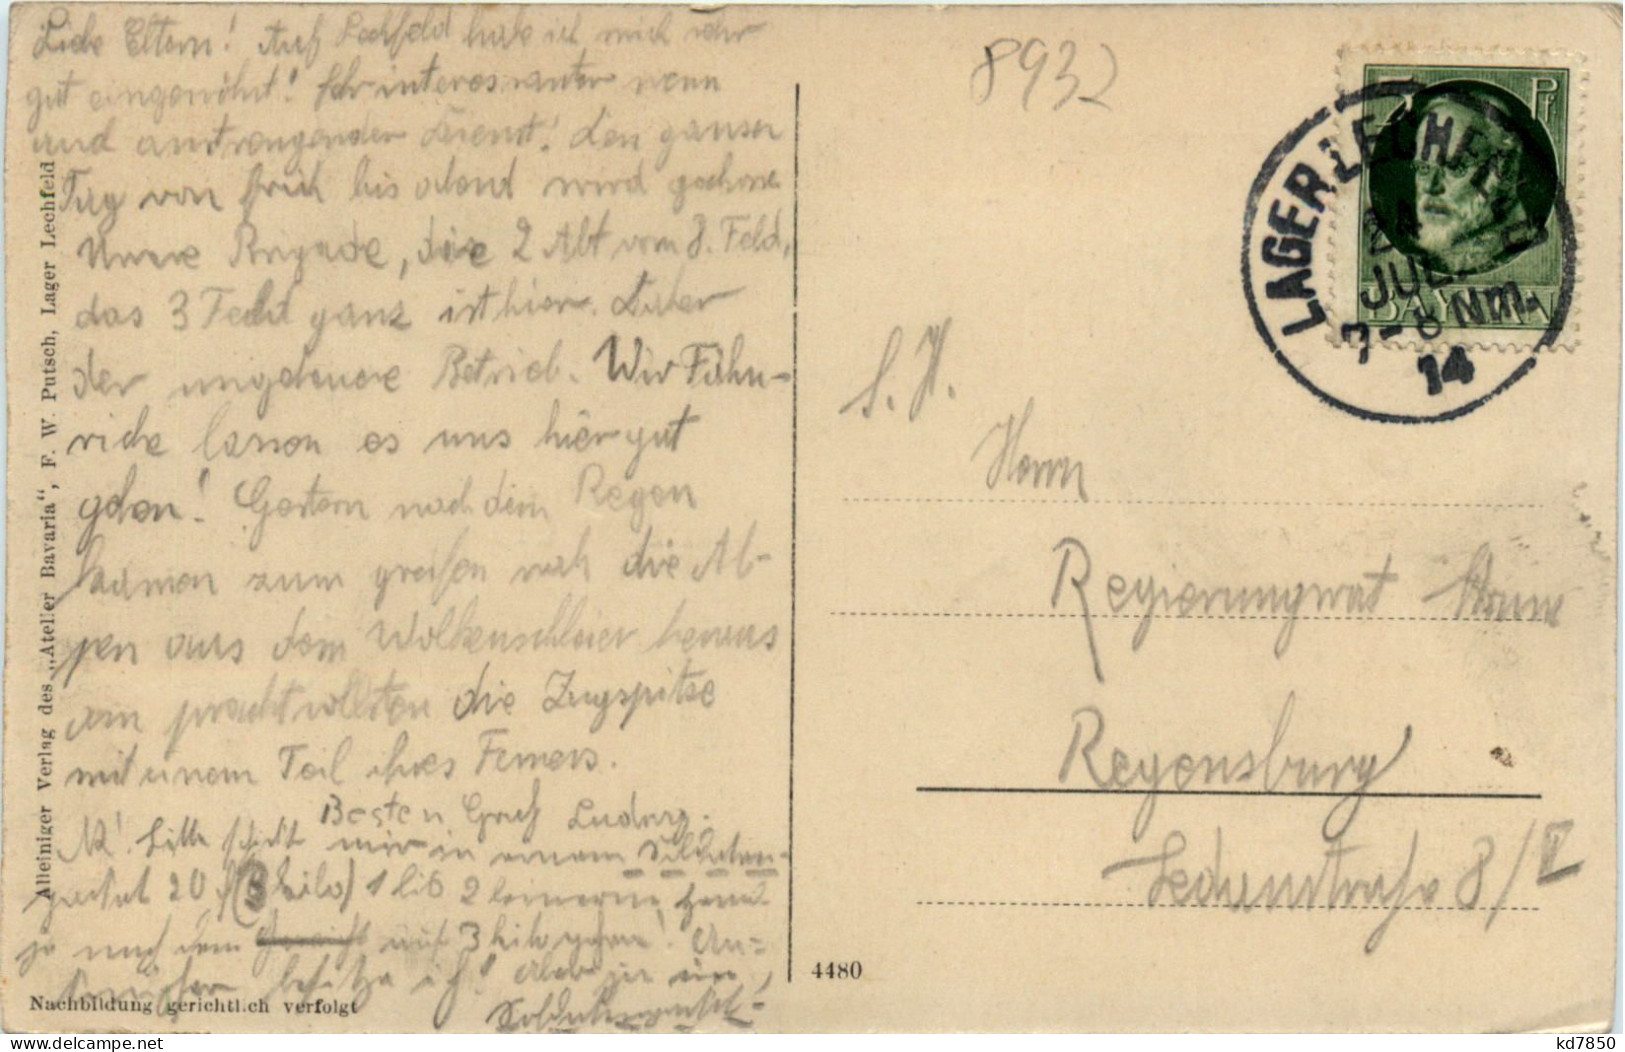 Liebe Eltern! Auf Lechfeld habe ich mich sehr
gut eingewöhnt! Sehr interessanter wenn
und anstrengender Dienst! Den ganzen
Tag von früh bis abend wird geschossen
Unsere Brigade, die 2 Abt vom 8. Feld,
das 3 Feld ganz ist hier. Daher
der ungeheuere Betrieb. Wir Fähn-
riche lassen es uns hier gut
gehen! Gestern nach dem Regen
kamen zum greifen nah die Al-
pen aus dem Wolkenschleier heraus
am prachtvollsten die Zugspitze
mit einem Teil ihres Ferners.
Besten Gruß Ludwig.
Bitte schickt mir in einem Soldaten-
paket 20 (3 kilo) 1 bis 2 leinerne
je nach dem auf 3 kilo gehen!
besitze ich! Aber ja ein
Soldatenpaket!
Alleiniger Verlag des „Atelier Bavaria“, F. W. Putsch, Lager Lechfeld
Nachbildung gerichtlich verfolgt
4480
8932
LAGER LECHFELD
24
JUL.
7-8 Nm.
14
Pf
BAYERN
S. H.
Herrn
Regierungsrat
Regensburg
8/II
kd7850